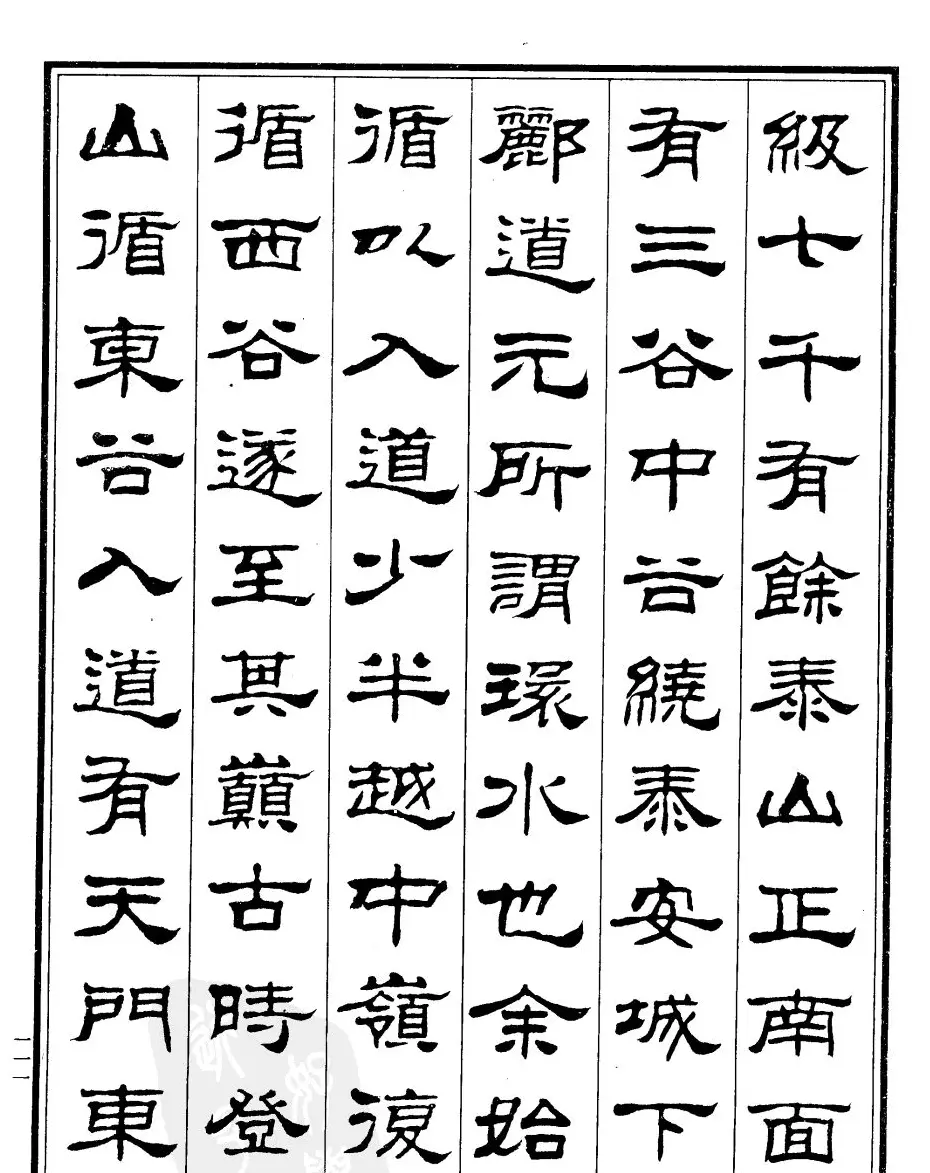 級七千有餘泰山正南面
有三谷中谷繞泰安城下
酈道元所謂環水也余始
循以入道少半越中嶺復
循西谷遂至其巔古時登
山循東谷入道有天門東